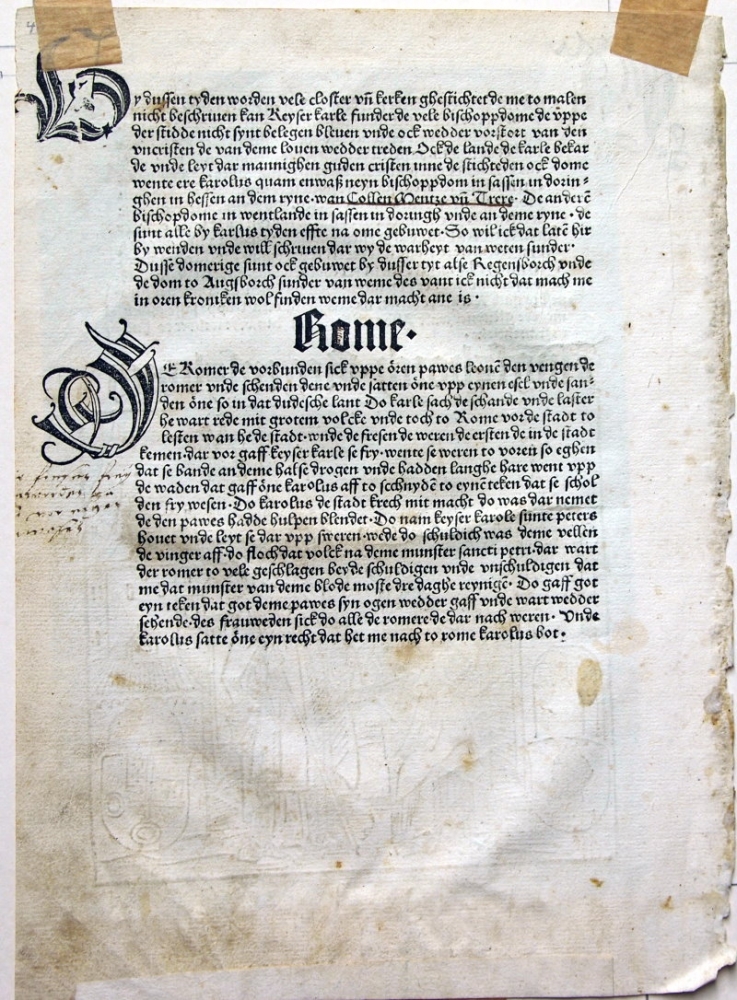 By dussen tyden worden vele closter vñ kerken ghestichtet de me to malen
nicht beschriuen kan Keyser karle funder de vele bischoppdome de vppe
der stidde nicht synt belegen bleuen vnde ock wedder vorstort van den
vncristen de van deme louen wedder treden. Ock de lande de karle bekar
de vnde leyt dar mannighen guden cristen inne de stichteden ock dome
wente ere karolus quam enwaß neyn bischoppdom in sassen in dorin-
ghen in hessen an dem ryne. wan Collen Mentze vñ Trere. De anderē
bischopdome in wentlande in sassen in doringh vnde an deme ryne. de
sint alle by karlus tyden effte na ome gebuwet. So wil ick dat latē hir
by wenden vnde will schriuen dar wy de warheyt van weten sunder.
Dusse domerige sint ock gebuwet by dusser tyt alse Regensborch vnde
de dom to Augsborch sunder van weme des vant ick nicht dat mach me
in oren kroniken wol finden weme dar macht ane is.
Rome.
DE Romer de vorbunden sick vppe ören pawes leonē den vengen de
romer vnde schenden dene vnde satten öne vpp eynen esel vnde san-
den öne so in dat dudesche lant Do karle sach de schande vnde laster
he wart rede mit grotem volcke vnde toch to Rome vor de stadt to
lesten wan he de stadt. vnde de fresen de weren de ersten de in de stadt
kemen. dar vor gaff keyser karle se fry. wente se weren to voren so eghen
dat se bande an deme halse drogen vnde hadden langhe hare went vpp
de waden dat gaff öne karolus aff to scchnydē to eynē teken dat se schol
den fry wesen. Do karolus de stadt krech mit macht do was dar nemet
de den pawes hadde hulpen blendet. Do nam keyser karole sinte peters
houet vnde leyt se dar vpp sweren. wede do schuldich was deme vellen
de vinger aff. do floch dat volck na deme munster sancti petri. dar wart
der romer to vele geschlagen beyde schuldigen vnde vnschuldigen dat
me dat munster van deme blode moste dre daghe reynigē. Do gaff got
eyn teken dat got deme pawes syn ogen wedder gaff vnde wart wedder
sehende. des frauweden sick do alle de romere de dar nach weren. Vnde
karolus satte öne eyn recht dat het me nach to rome karolus bot.